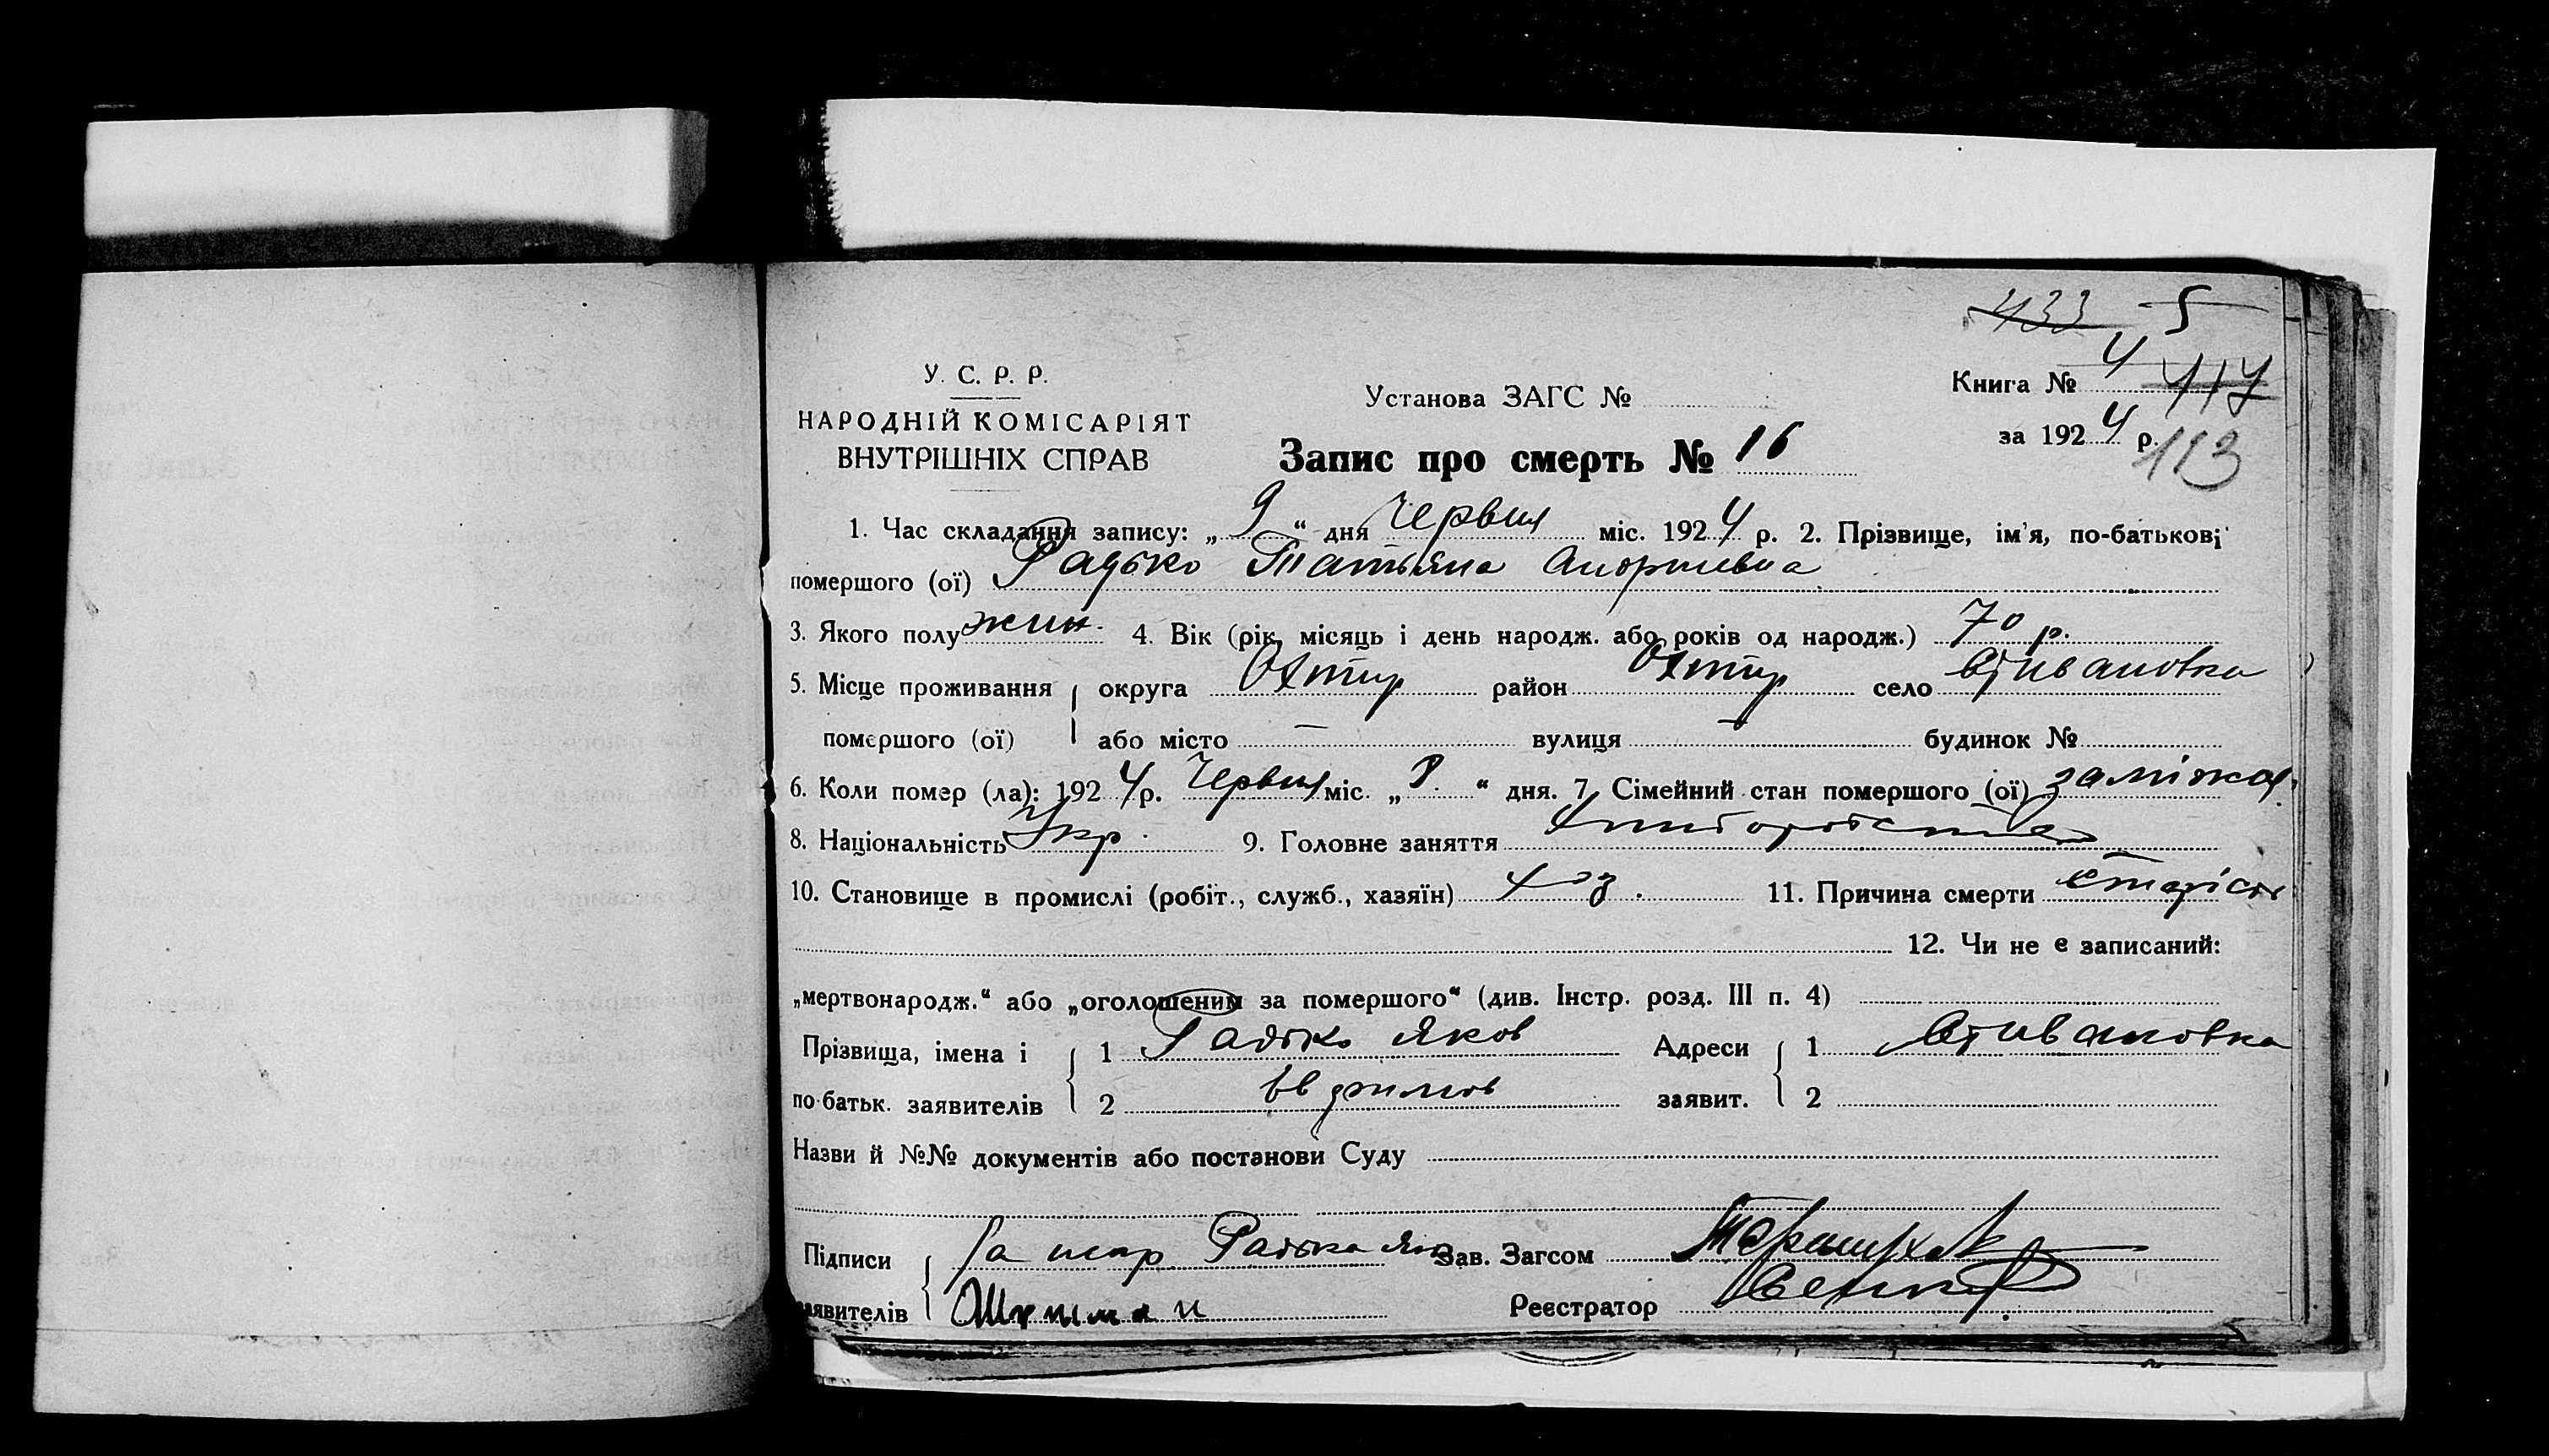 433 5
У. С. Р. Р.
НАРОДНІЙ КОМІСАРІЯТ
ВНУТРІШНІХ СПРАВ
Установа ЗАГС №
Книга № 4 417
за 1924 р. 113
Запис про смерть № 16
1. Час складання запису: „9“ дня Червня міс. 1924 р. 2. Прізвище, ім'я, по-батькові
помершого (ої) Радько Татьяна
3. Якого полу жин. 4. Вік (рік, місяць і день народж. або років од народж.) 70 р.
5. Місце проживання округа Охтир район Охтир село
помершого (ої) або місто — вулиця — будинок №
6. Коли помер (ла): 1924 р. Червня міс. „8.“ дня. 7. Сімейний стан помершого (ої) заміжня.
8. Національність Укр. 9. Головне заняття
10. Становище в промислі (робіт., служб., хазяїн) хоз. 11. Причина смерти старість
12. Чи не є записаний:
„мертвонародж.“ або „оголошеним за помершого“ (див. Інстр. розд. III п. 4)
Прізвища, імена і 1 Радько Яков Адреси 1
по-батьк. заявителів 2 заявит. 2
Назви й №№ документів або постанови Суду
Підписи За Радька Зав. Загсом
заявителів Реєстратор